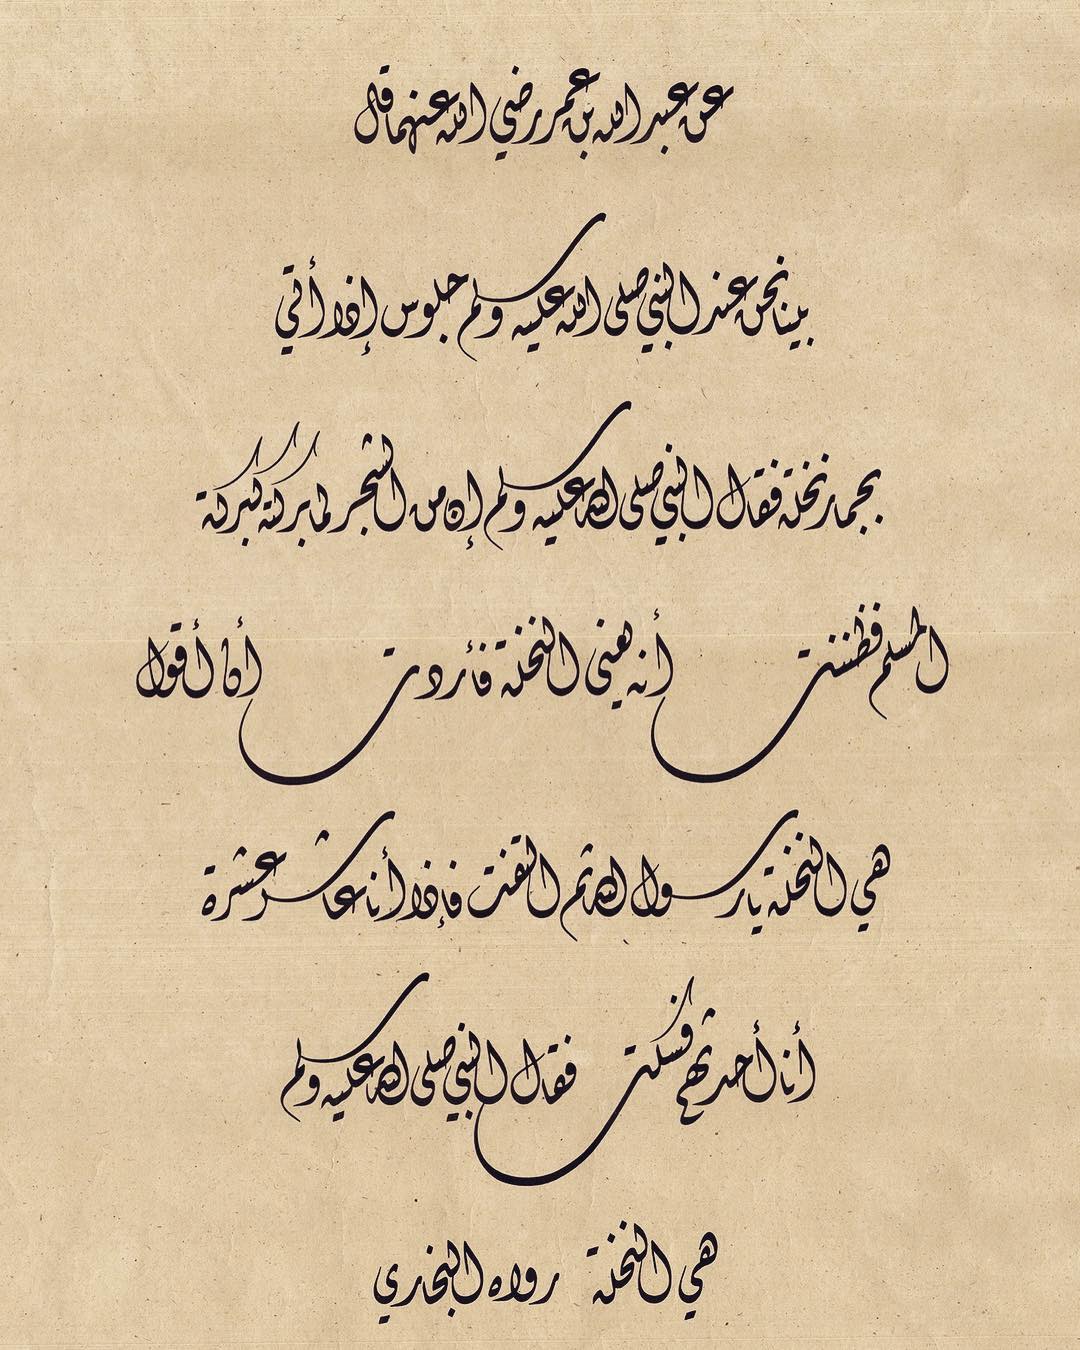 عن عبد الله بن عمر رضي الله عنهما قال
بينا نحن عند النبي صلى الله عليه وسلم جلوس إذا أتي
بجمار نخلة فقال النبي صلى الله عليه وسلم إن من الشجر لما بركته كبركة
المسلم فظننت أنه يعني النخلة فأردت أن أقول
هي النخلة يا رسول الله ثم التفت فإذا أنا عاشر عشرة
أنا أحدثهم فسكت فقال النبي صلى الله عليه وسلم
هي النخلة رواه البخاري